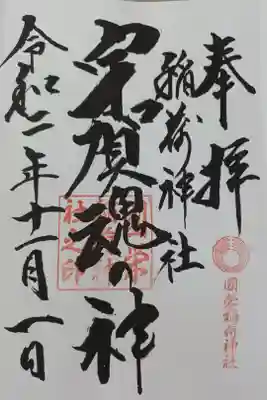 奉拝
稲荷神社
宇賀魂の神
令和二年十一月一日
稲荷神社